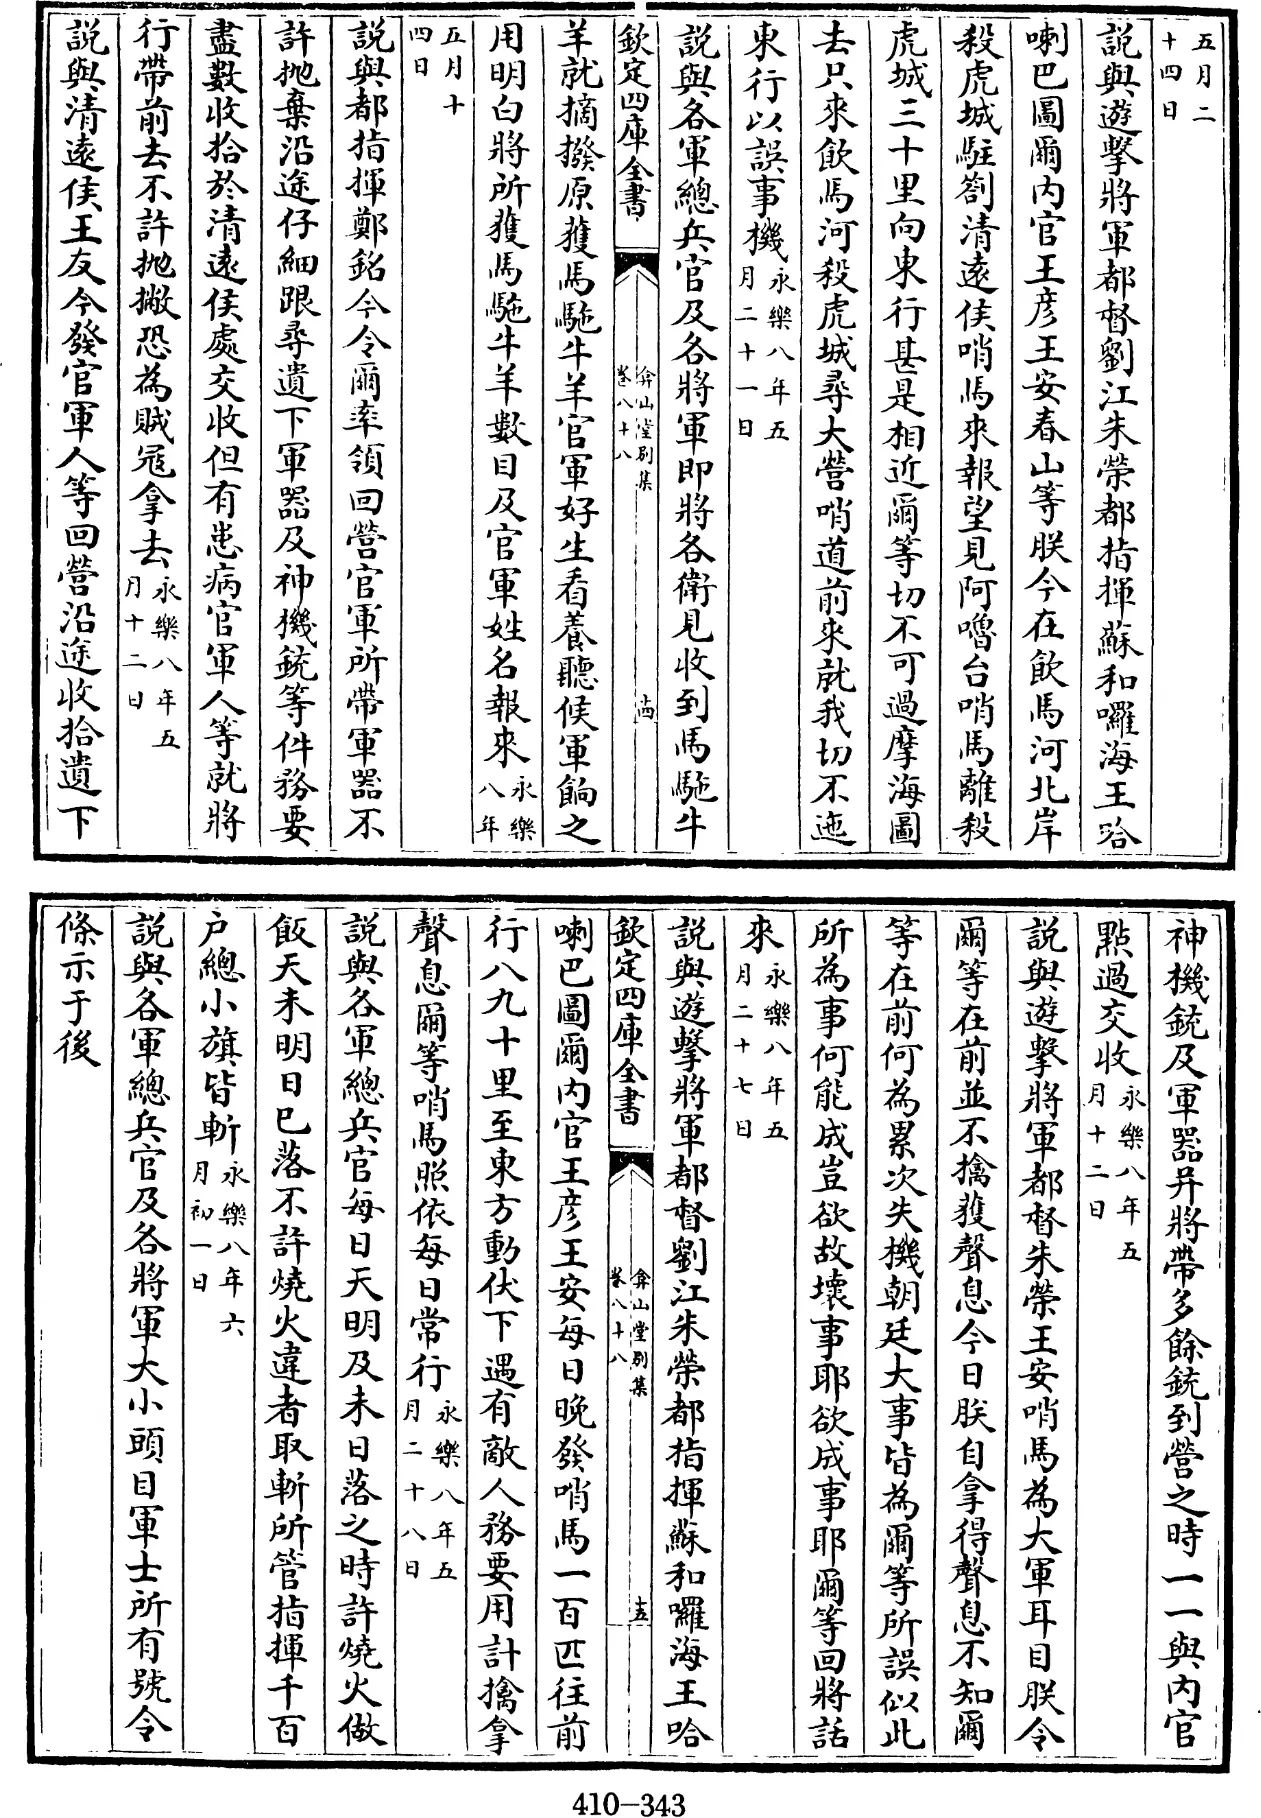 五月二
十四日
說與遊擊將軍都督劉江朱榮都指揮蘇和囉海王哈
喇巴圖爾内官王彦王安春山等朕今在飲馬河北岸
殺虎城駐劄清遠侯哨馬來報望見阿嚕台哨馬離殺
虎城三十里向東行甚是相近爾等切不可過摩海圖
去只來飲馬河殺虎城尋大營哨道前來就我切不迤
東行以誤事機永樂八年五
月二十一日
說與各軍總兵官及各將軍即將各衛見收到馬駞牛
欽定四庫全書
弇山堂别集
卷八十八
十四
羊就摘撥原獲馬駞牛羊官軍好生看養聽候軍餉之
用明白將所獲馬駞牛羊數目及官軍姓名報來永樂
八年
五月十
四日
說與都指揮鄭銘今令爾率領回營官軍所帶軍器不
許抛棄沿途仔細跟尋遺下軍器及神機銃等件務要
盡數收拾於清遠侯處交收但有患病官軍人等就將
行帶前去不許抛撇恐為賊寇拿去永樂八年五
月十二日
說與清遠侯王友今發官軍人等回營沿途收拾遺下
神機銃及軍器并將帶多餘銃到營之時一一與内官
點過交收永樂八年五
月十二日
說與遊擊將軍都督朱榮王安哨馬為大軍耳目朕令
爾等在前並不擒獲聲息今日朕自拿得聲息不知爾
等在前何為累次失機朝廷大事皆為爾等所誤似此
所為事何能成豈欲故壞事耶欲成事耶爾等回將話
來永樂八年五
月二十七日
說與遊擊將軍都督劉江朱榮都指揮蘇和囉海王哈
欽定四庫全書
弇山堂别集
卷八十八
十五
喇巴圖爾内官王彦王安每日晚發哨馬一百匹往前
行八九十里至東方動伏下遇有敵人務要用計擒拿
聲息爾等哨馬照依每日常行永樂八年五
月二十八日
說與各軍總兵官每日天明及未日落之時許燒火做
飯天未明日已落不許燒火違者取斬所管指揮千百
户總小旗皆斬永樂八年六
月初一日
說與各軍總兵官及各將軍大小頭目軍士所有號令
條示于後
410-343